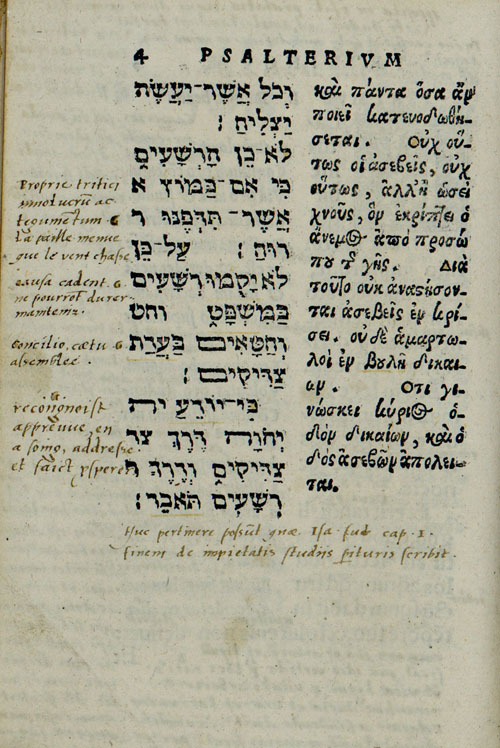 4 PSALTERIVM
וְכֹל אֲשֶׁר־יַעֲשֶׂה
יַצְלִיחַ׃
לֹא־כֵן הָרְשָׁעִים
כִּי אִם־כַּמּוֹץ א
אֲשֶׁר־תִּדְּפֶנּוּ ר
רוּחַ׃ עַל־כֵּן
לֹא־יָקֻמוּ רְשָׁעִים
בַּמִּשְׁפָּט וחט
וְחַטָּאִים בַּעֲדַת
צַדִּיקִים׃
כִּי־יוֹדֵעַ יה
יְהוָה דֶּרֶךְ צד
צַדִּיקִים וְדֶרֶךְ ר
רְשָׁעִים תֹּאבֵד׃
καὶ πάντα ὅσα ἂν
ποιεῖ κατευοδωθή-
σεται. Οὐχ οὕ-
τως οἱ ἀσεβεῖς, οὐχ
οὕτως, ἀλλ' ἢ ὡσεὶ
χνοῦς, ὃν ἐκρίπτει ὁ
ἄνεμος ἀπὸ προσώ
που τῆς γῆς. Διὰ
τοῦτο οὐκ ἀναστήσον-
ται ἀσεβεῖς ἐν κρί-
σει. οὐδὲ ἁμαρτω-
λοὶ ἐν βουλῇ δικαί-
ων. Ὅτι γι-
νώσκει κύριος ὁ-
δὸν δικαίων, καὶ ὁ
δὸς ἀσεβῶν ἀπολεῖ-
ται.
Proprie tritici
la paille menue
que le vent chasse
causa cadent.
ne pourrot durer
concilio, cœtu
assemblee
recongnoist
appreuue, en
a soing, addresse
Huc pertinere possūt quæ Isa sub cap. 1.
finem de impietatis studiis scribit.